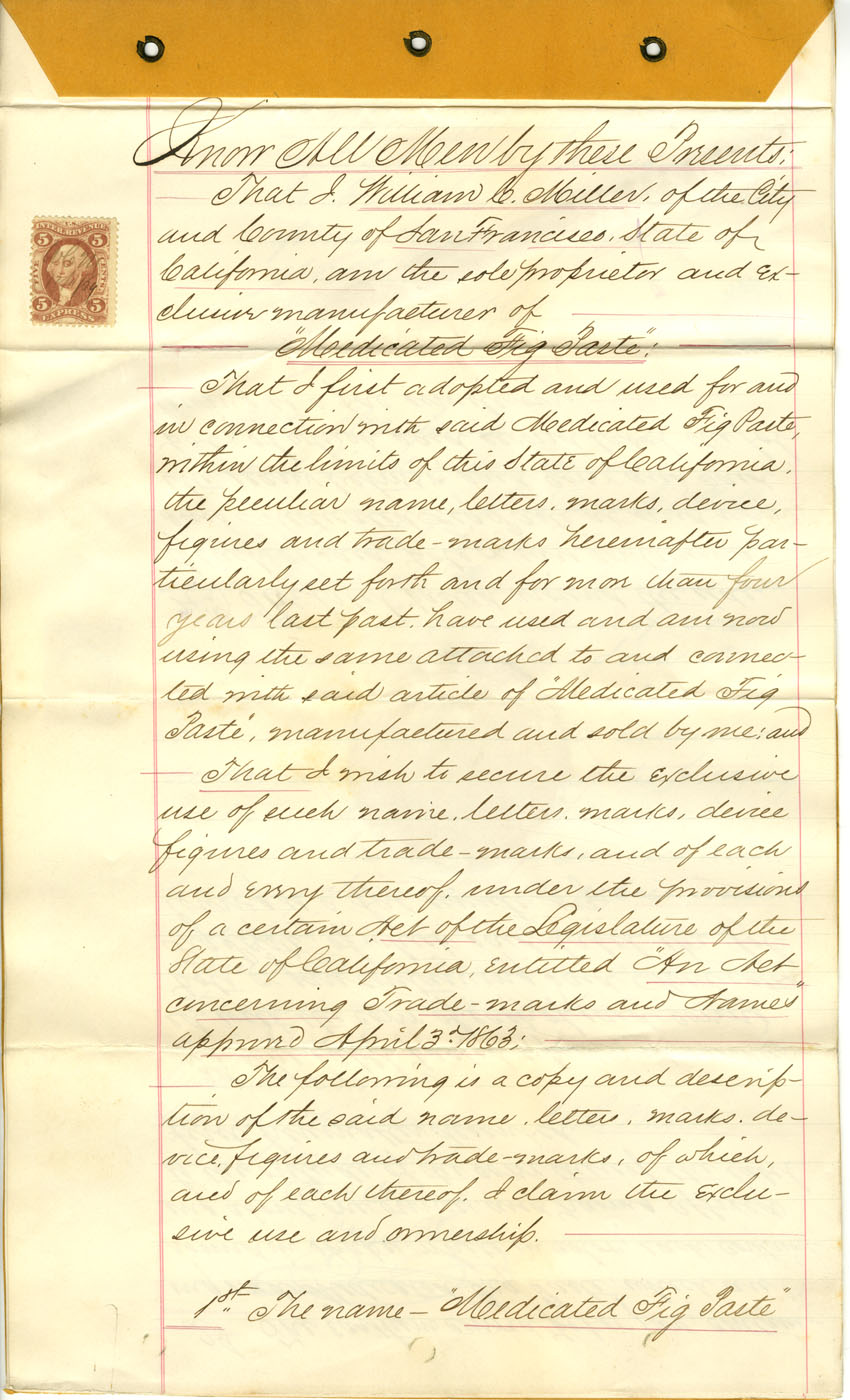 Know All Men by these Presents:
That I, William C. Miller, of the City
and County of San Francisco, State of
California, am the sole proprietor and ex-
clusive manufacturer of
"Medicated Fig Paste":
That I first adopted and used for and
in connection with said Medicated Fig Paste,
within the limits of this State of California,
the peculiar name, letters, marks, device,
figures and trade-marks hereinafter par-
ticularly set forth and for more than four
years last past, have used and am now
using the same attached to and connec-
ted with said article of "Medicated Fig
Paste", manufactured and sold by me: and
That I wish to secure the exclusive
use of such name, letters, marks, device
figures and trade-marks, and of each
and every thereof, under the provisions
of a certain Act of the Legislature of the
State of California, entitled "An Act
concerning Trade-marks and Names"
approved April 3d 1863;
The following is a copy and descrip-
tion of the said name, letters, marks, de-
vice, figures and trade-marks, of which,
and of each thereof, I claim the exclu-
sive use and ownership.
1st. The name - "Medicated Fig Paste"
U.S.
INTER. REVENUE
5 5
FIVE CENTS
5 5
EXPRESS